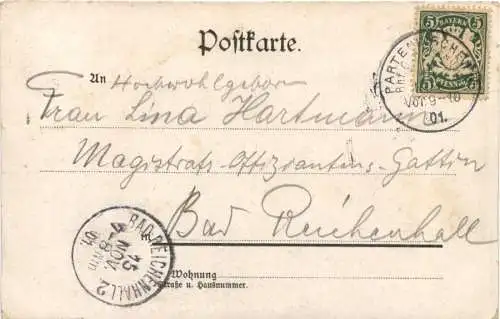 Postkarte.
5 BAYERN 5
PARTENKIRCHEN
Vor. 9-10
01.
An Hochwohlgeboren
Frau Lina Hartmann
Magistrats-Offiziantens-Gattin
Bad Reichenhall
BAD REICHENHALL 2
15
NOV.
01.
Wohnung
Straße u. Hausnummer.